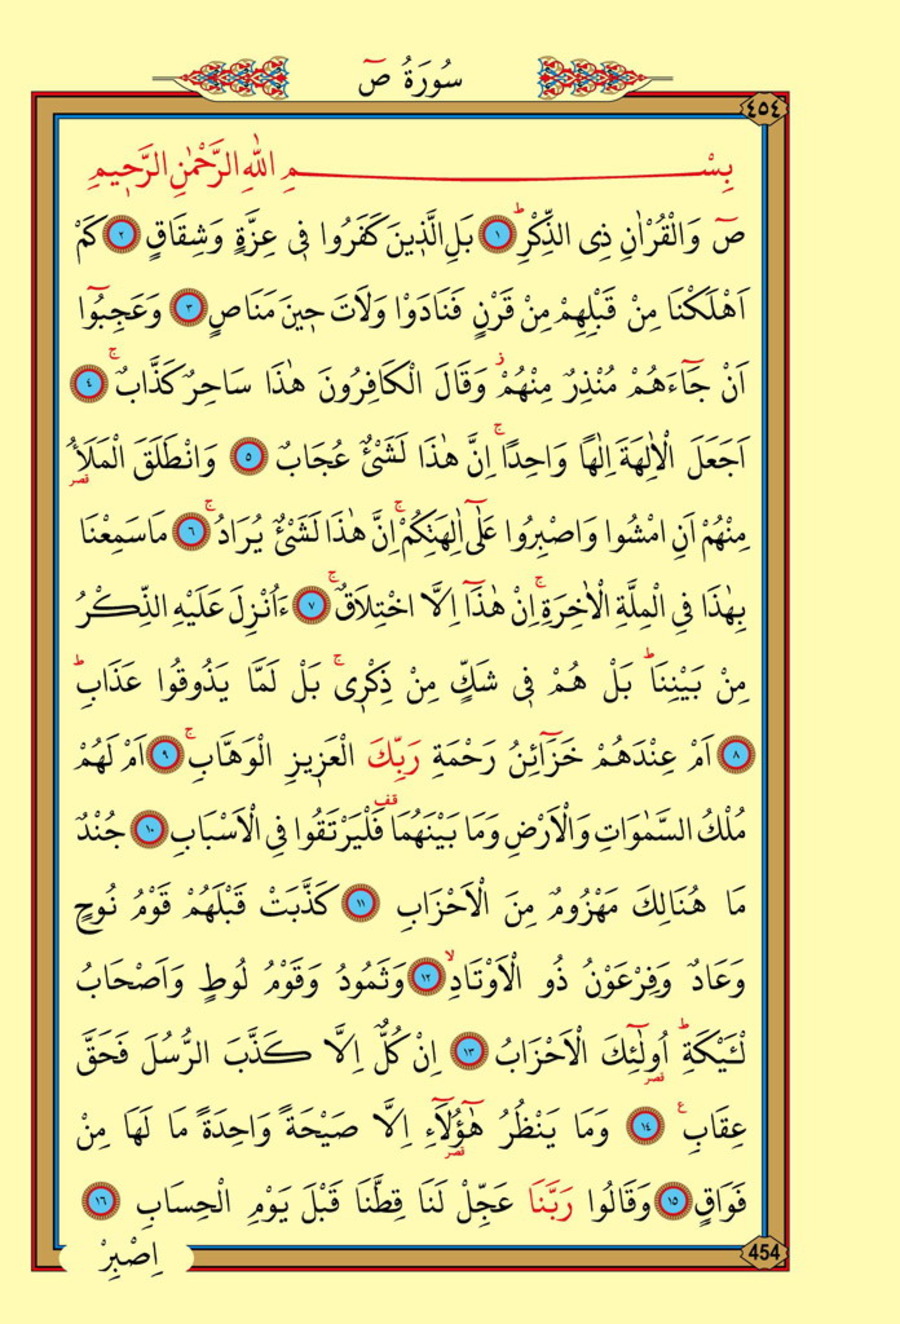 سُورَةُ صٓ
٤٥٤
بِسْمِ اللّٰهِ الرَّحْمٰنِ الرَّح۪يمِ
صٓ وَالْقُرْاٰنِ ذِى الذِّكْرِۜ ﴿١﴾ بَلِ الَّذ۪ينَ كَفَرُوا ف۪ى عِزَّةٍ وَشِقَاقٍ ﴿٢﴾ كَمْ
اَهْلَكْنَا مِنْ قَبْلِهِمْ مِنْ قَرْنٍ فَنَادَوْا وَلَاتَ ح۪ينَ مَنَاصٍ ﴿٣﴾ وَعَجِبُٓوا
اَنْ جَٓاءَهُمْ مُنْذِرٌ مِنْهُمْۘ وَقَالَ الْكَافِرُونَ هٰذَا سَاحِرٌ كَذَّابٌۚ ﴿٤﴾
اَجَعَلَ الْاٰلِهَةَ اِلٰهًا وَاحِدًاۚ اِنَّ هٰذَا لَشَىْءٌ عُجَابٌ ﴿٥﴾ وَانْطَلَقَ الْمَلَأُ
قصر
مِنْهُمْ اَنِ امْشُوا وَاصْبِرُوا عَلٰٓى اٰلِهَتِكُمْۚ اِنَّ هٰذَا لَشَىْءٌ يُرَادُۚ ﴿٦﴾ مَا سَمِعْنَا
بِهٰذَا فِى الْمِلَّةِ الْاٰخِرَةِۚ اِنْ هٰذَٓا اِلَّا اخْتِلَاقٌۚ ﴿٧﴾ ءَاُنْزِلَ عَلَيْهِ الذِّكْرُ
مِنْ بَيْنِنَاۜ بَلْ هُمْ ف۪ى شَكٍّ مِنْ ذِكْر۪ىۚ بَلْ لَمَّا يَذُوقُوا عَذَابِۜ
﴿٨﴾ اَمْ عِنْدَهُمْ خَزَٓائِنُ رَحْمَةِ رَبِّكَ الْعَز۪يزِ الْوَهَّابِۚ ﴿٩﴾ اَمْ لَهُمْ
مُلْكُ السَّمٰوَاتِ وَالْاَرْضِ وَمَا بَيْنَهُمَا قف فَلْيَرْتَقُوا فِى الْاَسْبَابِ ﴿١٠﴾ جُنْدٌ
مَا هُنَالِكَ مَهْزُومٌ مِنَ الْاَحْزَابِ ﴿١١﴾ كَذَّبَتْ قَبْلَهُمْ قَوْمُ نُوحٍ
وَعَادٌ وَفِرْعَوْنُ ذُو الْاَوْتَادِۙ ﴿١٢﴾ وَثَمُودُ وَقَوْمُ لُوطٍ وَاَصْحَابُ
لْـَٔيْكَةِۜ اُو۬لٰٓئِكَ الْاَحْزَابُ ﴿١٣﴾ اِنْ كُلٌّ اِلَّا كَذَّبَ الرُّسُلَ فَحَقَّ
قصر
عِقَابِ ع ﴿١٤﴾ وَمَا يَنْظُرُ هٰٓؤُ۬لَٓاءِ اِلَّا صَيْحَةً وَاحِدَةً مَا لَهَا مِنْ
قصر
فَوَاقٍ ﴿١٥﴾ وَقَالُوا رَبَّنَا عَجِّلْ لَنَا قِطَّنَا قَبْلَ يَوْمِ الْحِسَابِ ﴿١٦﴾
اِصْبِرْ
454